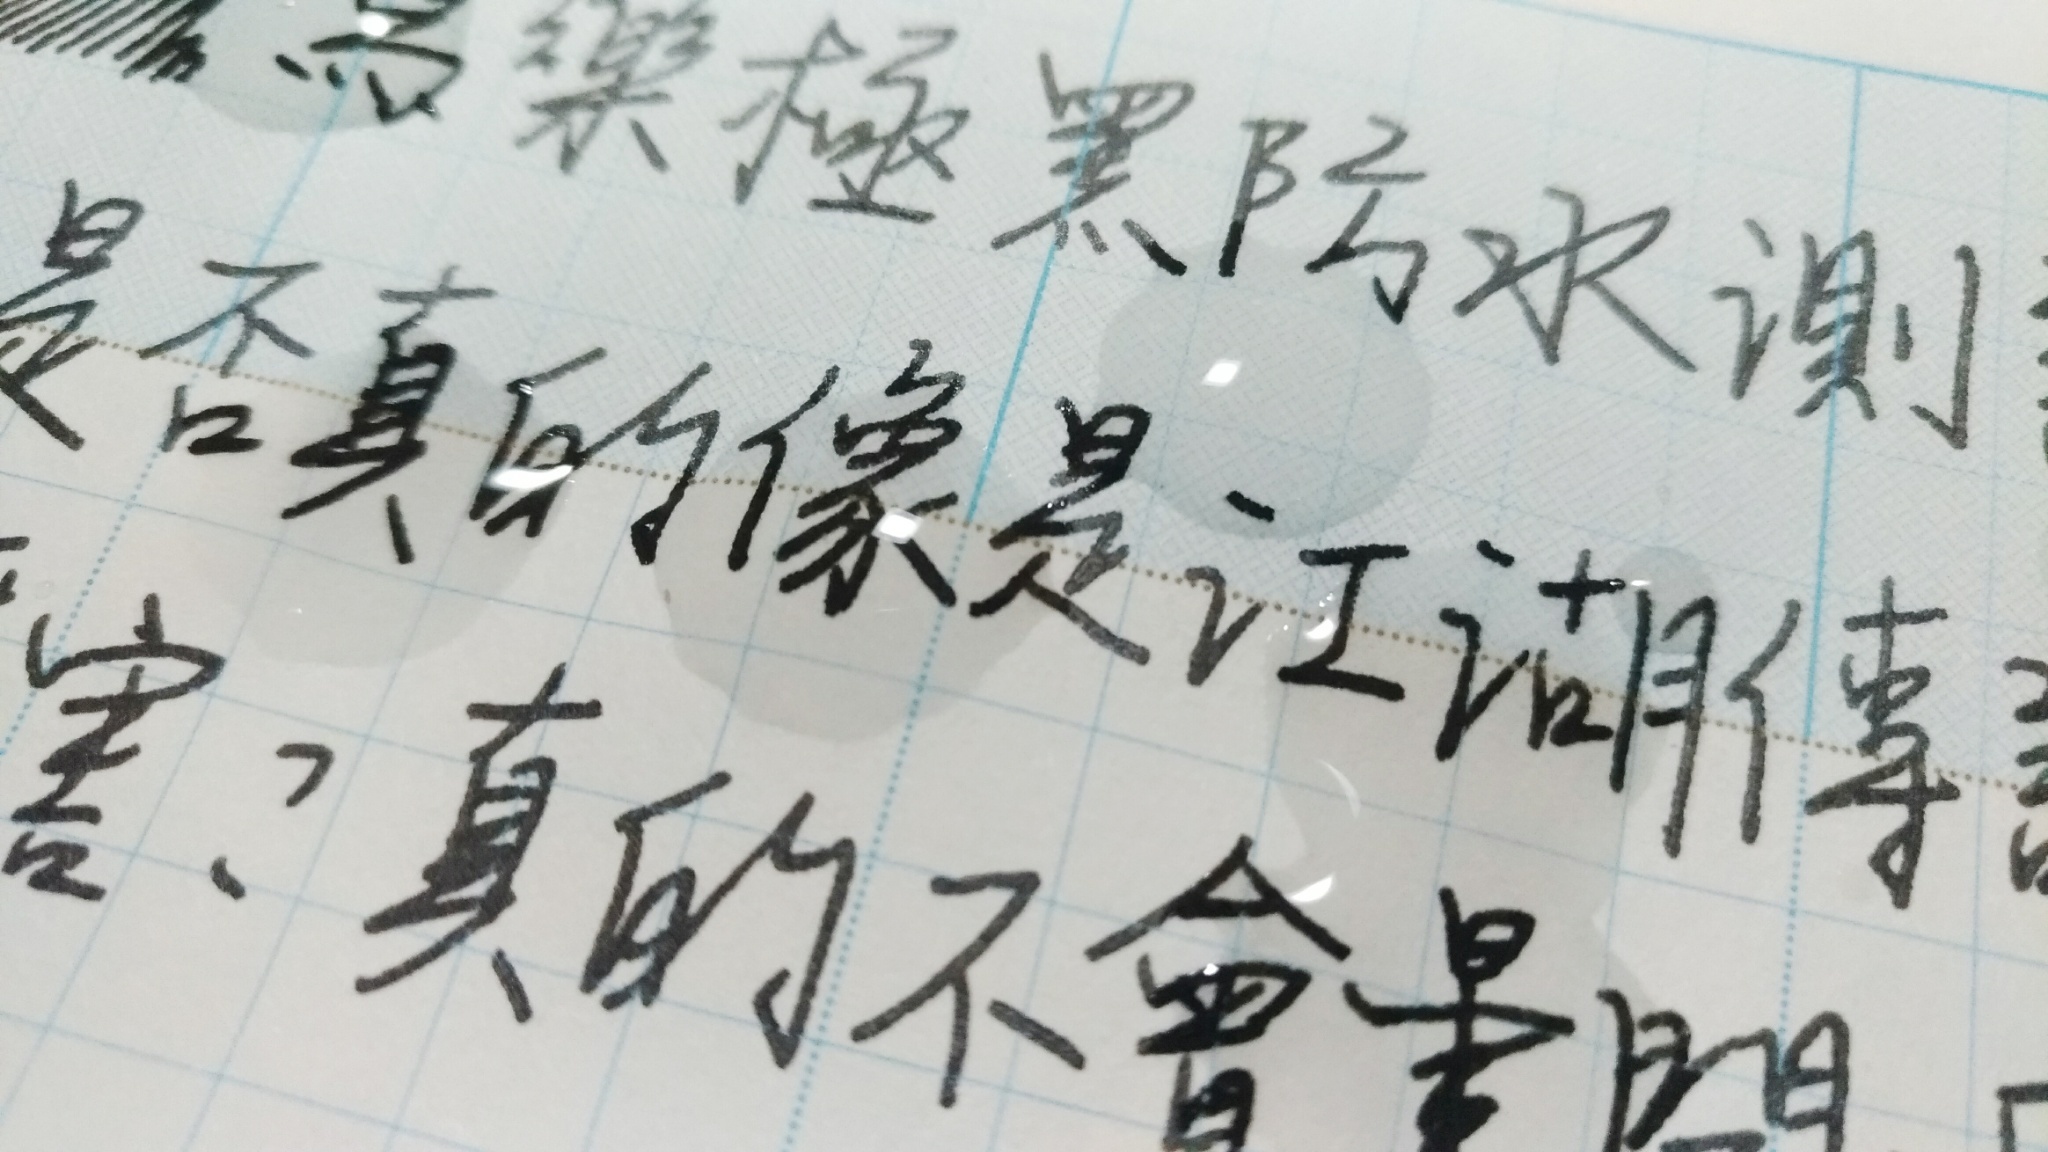 樂極黑防水測
是否真的像是江湖傳
害?真的不會暈開